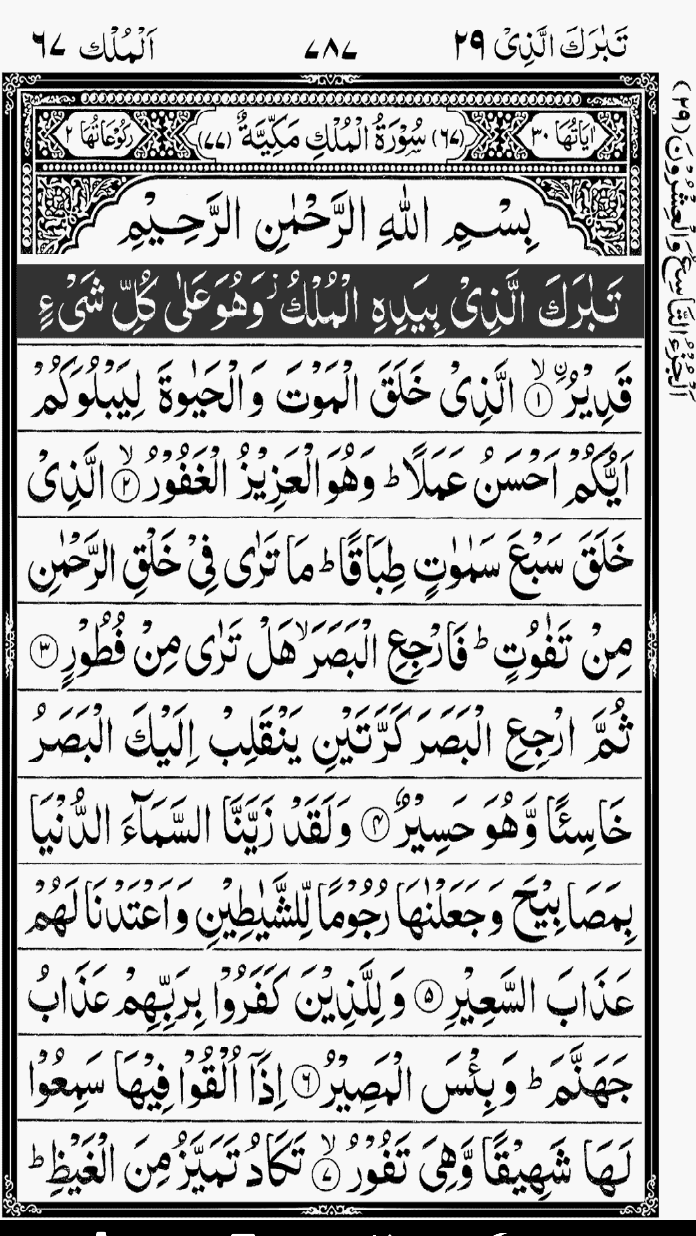 تَبٰرَكَ الَّذِىْ ٢٩ ٧٨٧ اَلْمُلْك ٦٧
اٰيَاتُهَا ٣٠ (٦٧) سُوْرَةُ الْمُلْكِ مَكِّيَّةٌ (٧٧) رُكُوْعَاتُهَا ٢
بِسْمِ اللهِ الرَّحْمٰنِ الرَّحِيْمِ
تَبٰرَكَ الَّذِىْ بِيَدِهِ الْمُلْكُ ز وَهُوَ عَلٰى كُلِّ شَىْءٍ
قَدِيْرُ ۨ ۙ ١ الَّذِىْ خَلَقَ الْمَوْتَ وَالْحَيٰوةَ لِيَبْلُوَكُمْ
اَيُّكُمْ اَحْسَنُ عَمَلًا ؕ وَهُوَ الْعَزِيْزُ الْغَفُوْرُ ۙ ٢ الَّذِىْ
خَلَقَ سَبْعَ سَمٰوٰتٍ طِبَاقًا ؕ مَا تَرٰى فِىْ خَلْقِ الرَّحْمٰنِ
مِنْ تَفٰوُتٍ ؕ فَارْجِعِ الْبَصَرَ ۙ هَلْ تَرٰى مِنْ فُطُوْرٍ ٣
ثُمَّ ارْجِعِ الْبَصَرَ كَرَّتَيْنِ يَنْقَلِبْ اِلَيْكَ الْبَصَرُ
خَاسِئًا وَّهُوَ حَسِيْرٌ ٤ وَلَقَدْ زَيَّنَّا السَّمَآءَ الدُّنْيَا
بِمَصَابِيْحَ وَجَعَلْنٰهَا رُجُوْمًا لِّلشَّيٰطِيْنِ وَاَعْتَدْنَا لَهُمْ
عَذَابَ السَّعِيْرِ ٥ وَلِلَّذِيْنَ كَفَرُوْا بِرَبِّهِمْ عَذَابُ
جَهَنَّمَ ؕ وَبِئْسَ الْمَصِيْرُ ٦ اِذَآ اُلْقُوْا فِيْهَا سَمِعُوْا
لَهَا شَهِيْقًا وَّهِىَ تَفُوْرُ ۙ ٧ تَكَادُ تَمَيَّزُ مِنَ الْغَيْظِ ؕ
اَلْجُزْءُ التَّاسِعُ وَالْعِشْرُوْنَ (٢٩)